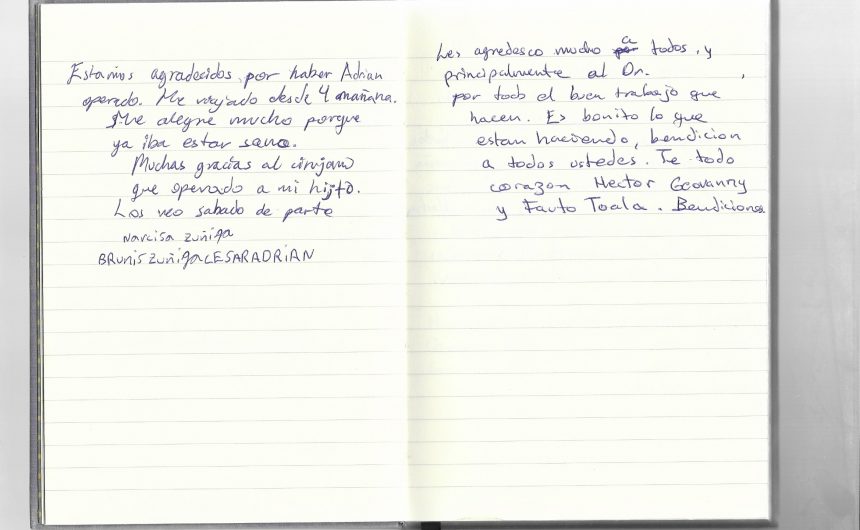 Estamos agradecidos, por haber Adrian
operado. Me viajado desde 4 mañana.
Me alegre mucho porque
ya iba estar sano.
Muchas gracias al cirujano
que operado a mi hijto.
Los veo sabado de parte
Narcisa Zuñiga
BRUNIS ZUÑIGA CESAR ADRIAN
Les agredesco mucho a todos, y
principalmente al Dr. ,
por todo el buen trabajo que
hacen. Es bonito lo que
estan haciendo, bendicion
a todos ustedes. Te todo
corazon Hector Geovanny
y Fauto Toala. Bendiciones